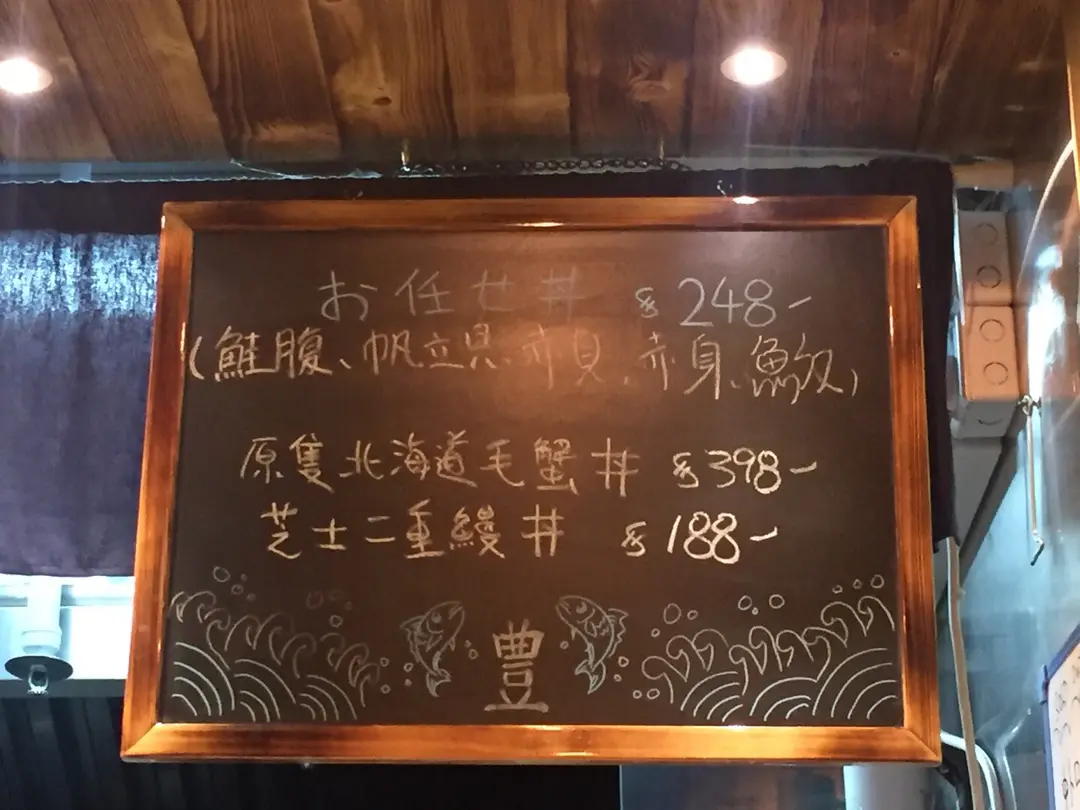 お任せ丼 $248-
(鮭腹、帆立貝、赤貝、赤身、魚
原隻北海道毛蟹丼 $398-
芝士二重鰻丼 $188-
豊